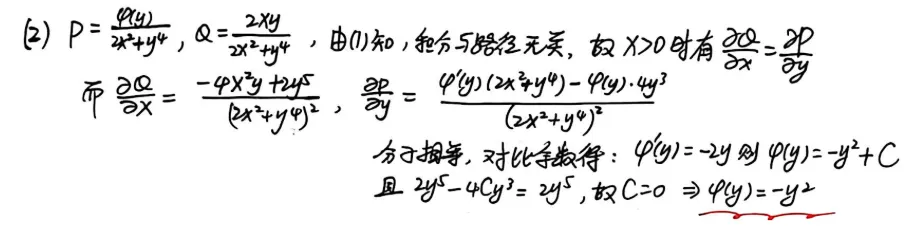 (2) P = φ(y)/(2x²+y⁴), Q = 2xy/(2x²+y⁴), 由(1)知, 积分与路径无关, 故 x>0 时有 ∂Q/∂x = ∂P/∂y
而 ∂Q/∂x = (-4x²y+2y⁵)/(2x²+y⁴)², ∂P/∂y = (φ'(y)(2x²+y⁴)-φ(y)·4y³)/(2x²+y⁴)²
分子相等, 对比系数得: φ'(y)=-2y 则 φ(y)=-y²+C
且 2y⁵-4Cy³=2y⁵, 故 C=0 ⇒ φ(y)=-y²